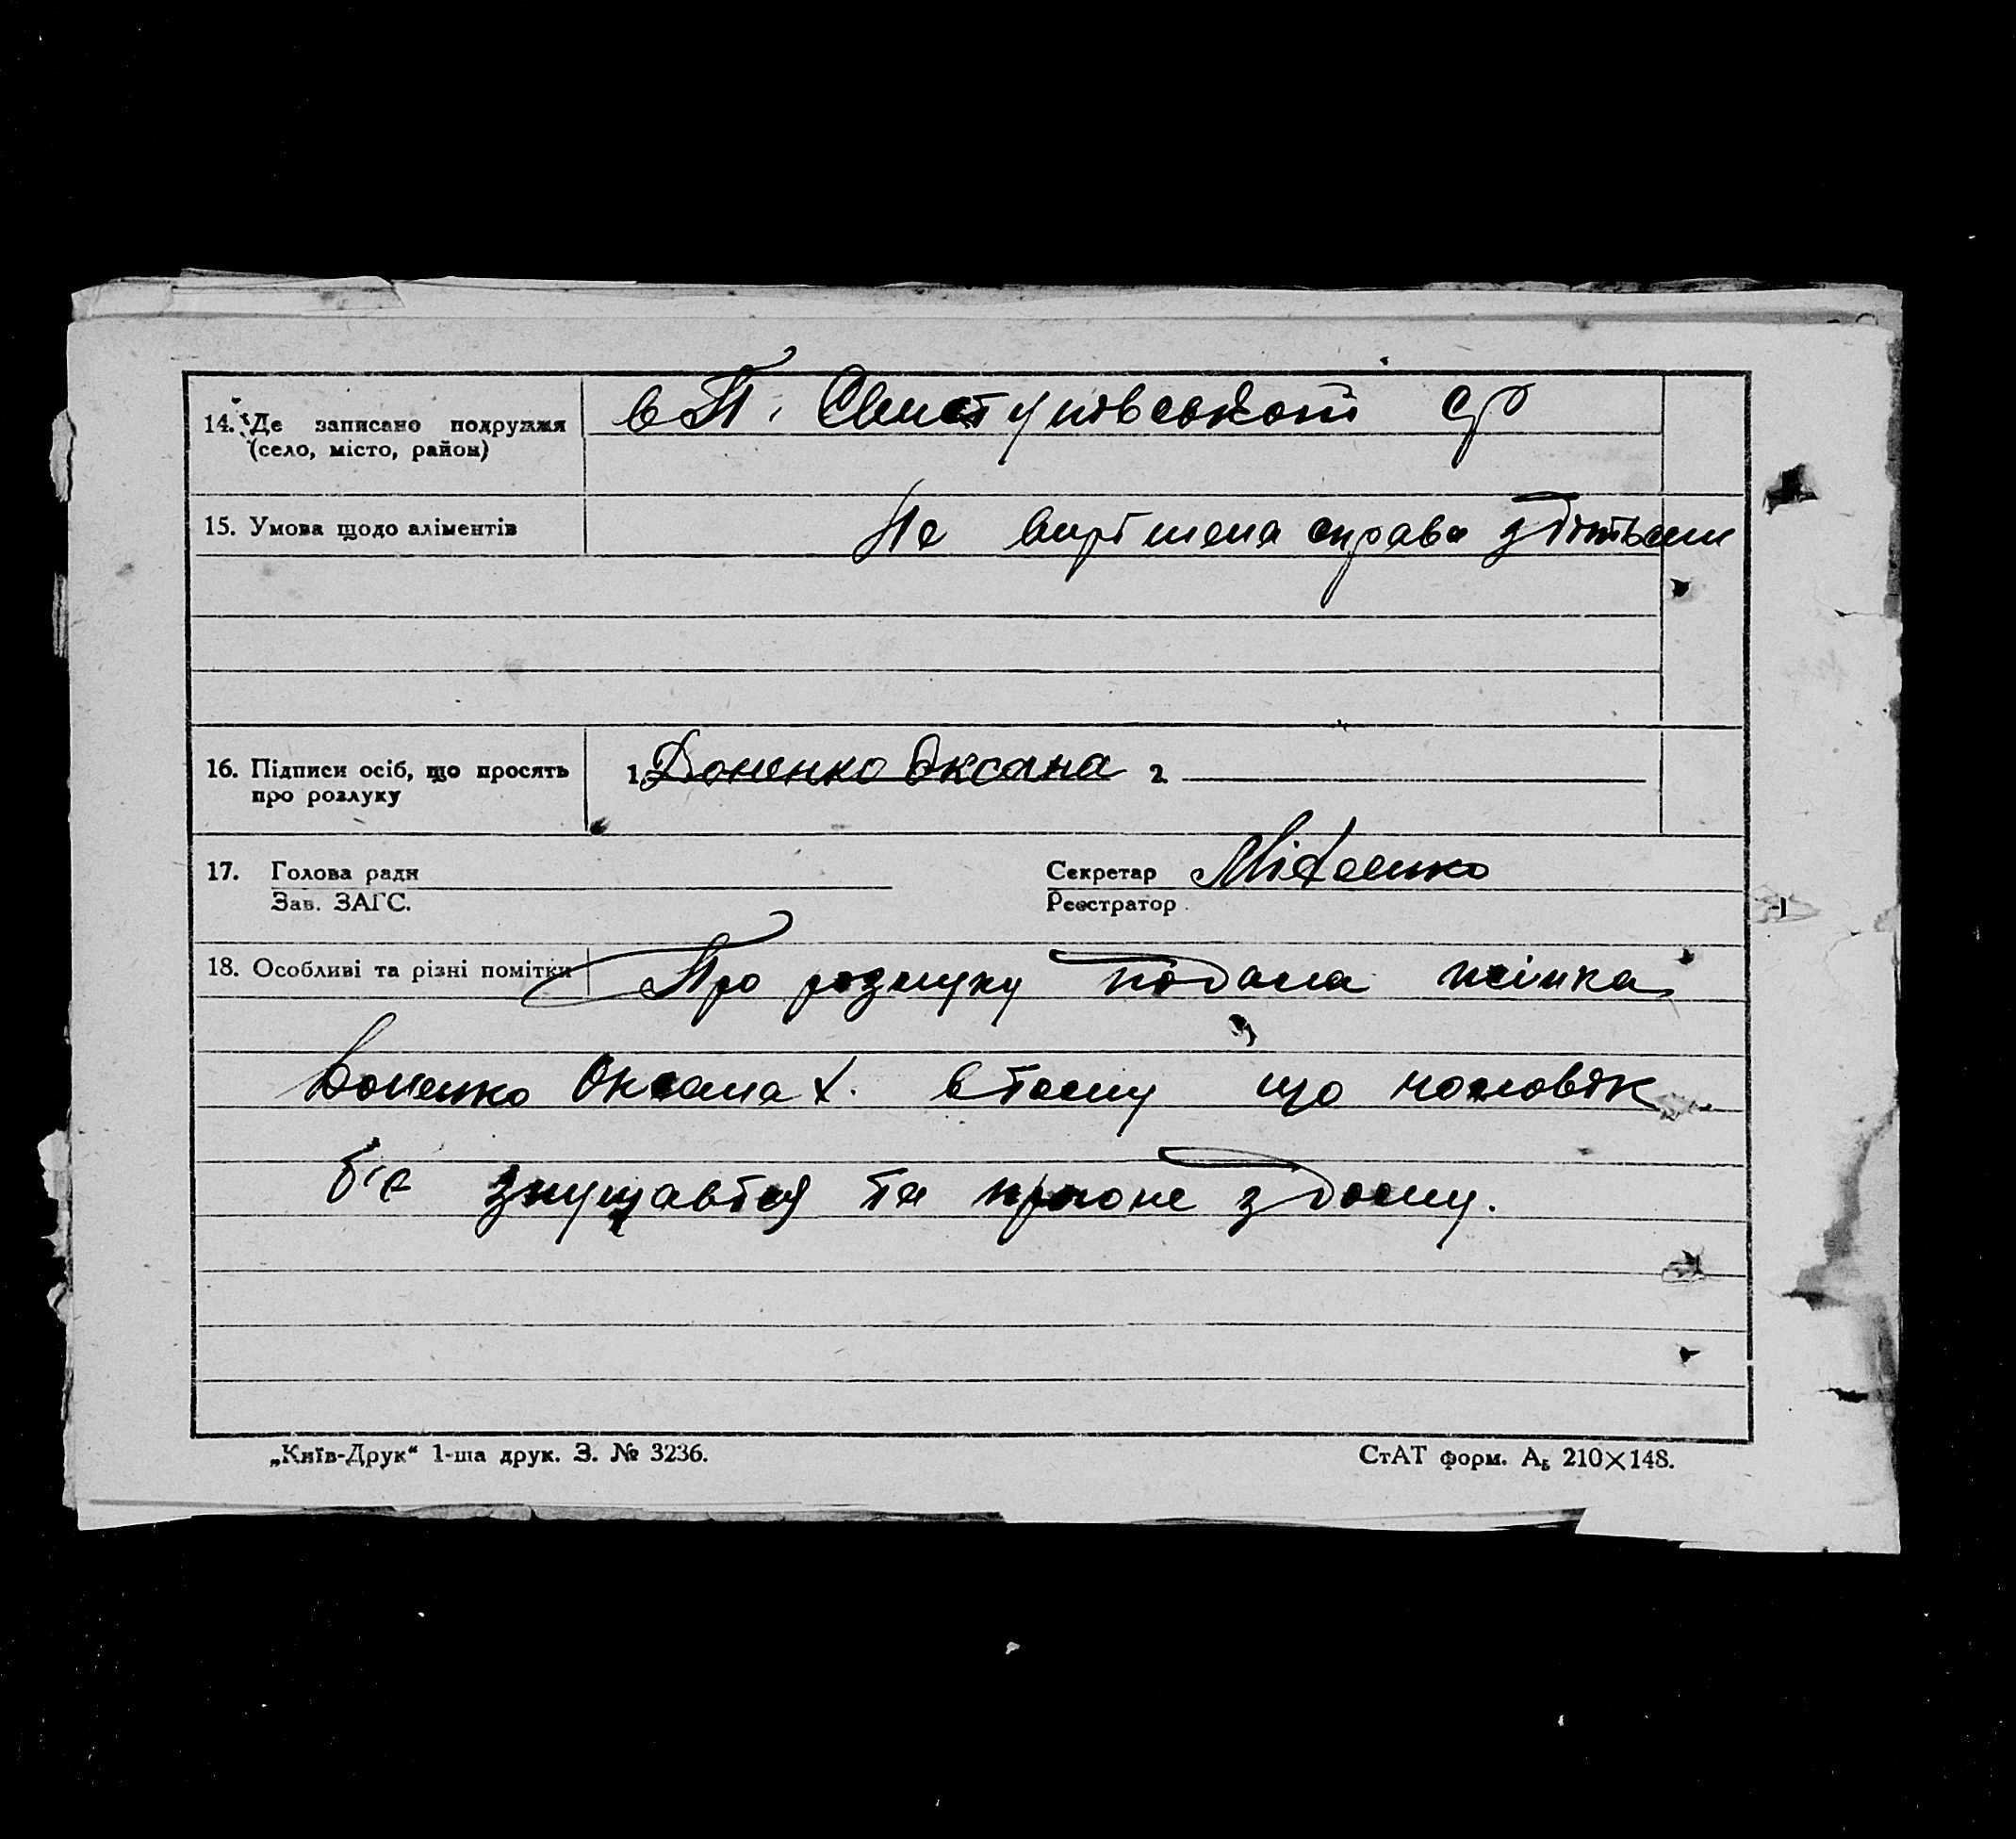 14. Де записано подружжя
(село, місто, район)
в П. Свистунівській с/р
15. Умова щодо аліментів
Не вирішена справа з дітьми
16. Підписи осіб, що просять
про розлуку
1. Доненко Оксана 2.
17. Голова ради
Зав. ЗАГС.
Секретар
Реєстратор
18. Особливі та різні помітки
Про розлуку подала жінка
Доненко Оксана Х. в тому що чоловік
б'є знущавтся та прогоне з дому.
„Київ-Друк“ 1-ша друк. З. № 3236.
СтАТ форм. А₅ 210×148.